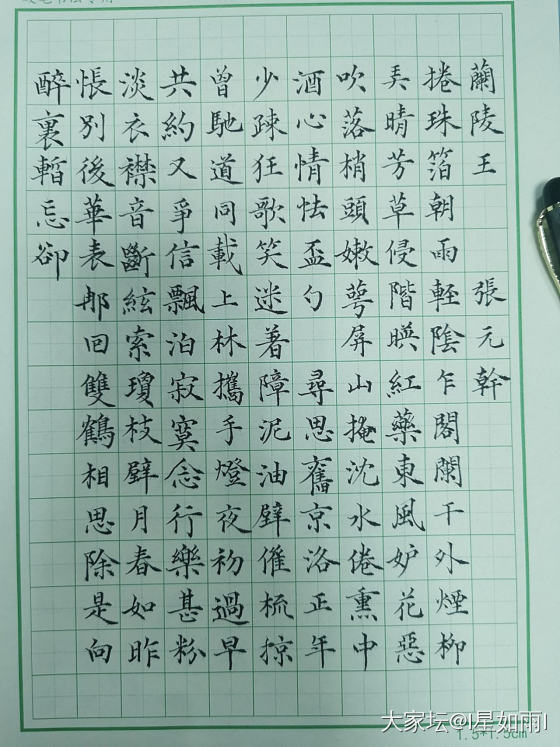 蘭陵王 張元幹
捲珠箔朝雨輕陰乍閣闌干外煙柳
弄晴芳草侵階暎紅藥東風妒花惡
吹落梢頭嫩萼屏山掩沈水倦熏中
酒心情怯盃勺 尋思舊京洛正年
少疎狂歌笑迷著障泥油壁催梳掠
曾馳道同載上林攜手燈夜初過早
共約又爭信飄泊寂寞念行樂甚粉
淡衣襟音斷絃索瓊枝璧月春如昨
悵別後華表那回雙鶴相思除是向
醉裏暫忘卻
1.5*1.5cm
大家坛@I星如雨I